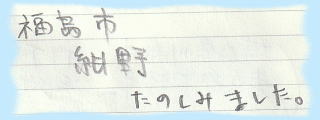 福島市
紺野
たのしみました。